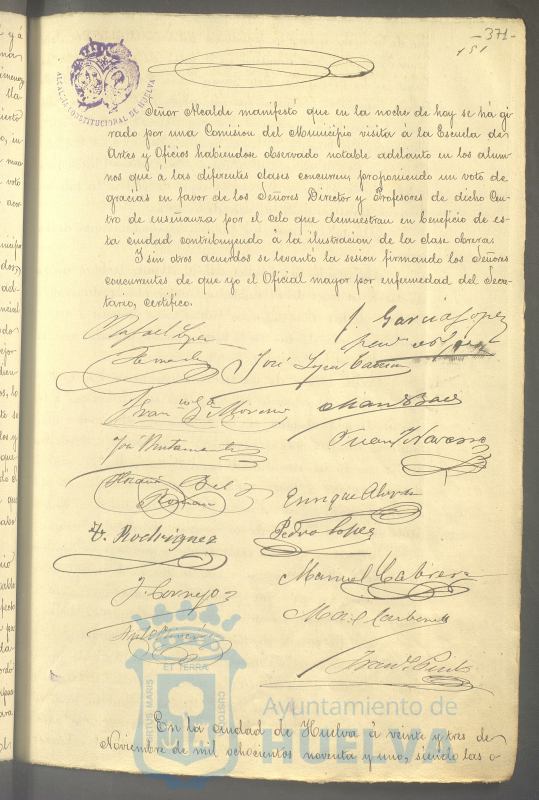 -371-
151
ALCALDIA CONSTITUCIONAL DE HUELVA
Señor Alcalde manifestó que en la noche de hoy se ha gi
rado por una Comision del Municipio visita à la Escuela de
Artes y Oficios habiendose observado notable adelanto en los alum
nos que à las diferentes clases concurren, proponiendo un voto de
gracias en favor de los Señores Director y Profesores de dicho Cen
tro de enseñanza por el celo que demuestran en beneficio de es-
ta ciudad contribuyendo à la ilustracion de la clase obrera.
I sin otros acuerdos se levantó la sesion firmando los Señores
concurrentes de que yo el Oficial mayor por enfermedad del Secre-
tario, certifico.
Rafael Lopez
J. García Lopez
Hernandez
José
Fran Moreno
José Bustamante
Juan Navarro
Joaquin
Roman
Enrique
T. Rodriguez
Pedro Lopez
Manuel Cabrera
J. Cornejo
Carbonell
Fran
PORTUS MARIS ET TERRAE CUSTODIA
Ayuntamiento de
HUELVA
En la ciudad de Huelva à veinte y tres de
Noviembre de mil ochocientos noventa y uno, siendo las o